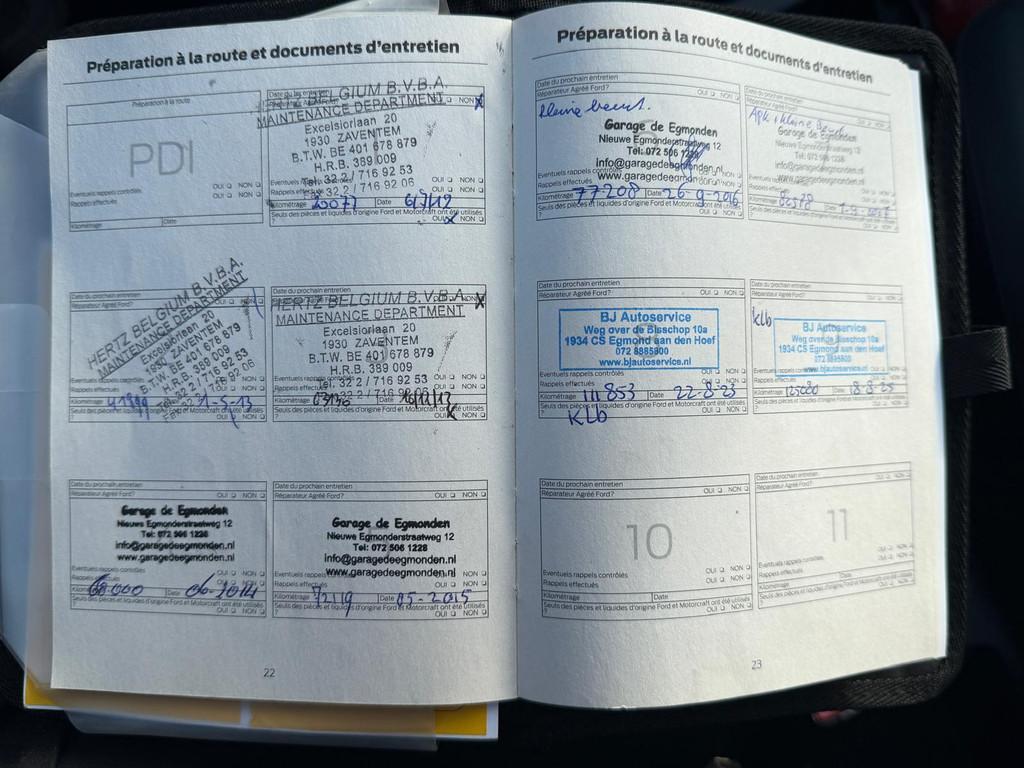 Préparation à la route et documents d'entretien
Préparation à la route
PDI
Eventuels rappels contrôlés
OUI NON
Rappels effectués
OUI NON
Kilométrage
Date
GIUM B.V.B.A.
MAINTENANCE DEPARTMENT
Excelsiorlaan 20
1930 ZAVENTEM
B.T.W. BE 401 678 879
H.R.B. 389 009
Tel. 32.2 / 716 92 53
32 2 / 716 92 06
Rappels effectués
OUI NON
Kilométrage 20077 Date
Seuls des pièces et liquides d'origine Ford et Motorcraft ont été utilisés
? OUI NON
Date du prochain entretien
Réparateur Agréé Ford?
HERTZ BELGIUM B.V.B.A.
MAINTENANCE DEPARTMENT
Excelsiorlaan 20
1930 ZAVENTEM
B.T.W. BE 401 678 879
H.R.B. 389 009
Rappels effectués
Kilométrage
Date du prochain entretien
HERTZ BELGIUM B.V.B.A.
MAINTENANCE DEPARTMENT
Excelsiorlaan 20
1930 ZAVENTEM
B.T.W. BE 401 678 879
H.R.B. 389 009
Tel. 32.2 / 716 92 53
Rappels effectués
OUI NON
Kilométrage
Date du prochain entretien
Réparateur Agréé Ford? OUI NON
Garage de Egmonden
Nieuwe Egmonderstraatweg 12
Tel: 072 506 1228
info@garagedeegmonden.nl
www.garagedeegmonden.nl
Eventuels rappels contrôlés
OUI NON
60.000 Date 06-2014
Seuls des pièces et liquides d'origine Ford et Motorcraft ont été utilisés
? OUI NON
Date du prochain entretien
Réparateur Agréé Ford? OUI NON
Garage de Egmonden
Nieuwe Egmonderstraatweg 12
Tel: 072 506 1228
info@garagedeegmonden.nl
www.garagedeegmonden.nl
Rappels effectués
OUI NON
Kilométrage 72119 Date 05-2015
Seuls des pièces et liquides d'origine Ford et Motorcraft ont été utilisés
? OUI NON
22
Préparation à la route et documents d'entretien
Date du prochain entretien
Réparateur Agréé Ford? OUI NON
kleine beurt.
Garage de Egmonden
Nieuwe Egmonderstraatweg 12
Tel: 072 506 1228
info@garagedeegmonden.nl
www.garagedeegmonden.nl
Rappels effectués
OUI NON
Kilométrage 77208 Date 26-9-2016
Seuls des pièces et liquides d'origine Ford et Motorcraft ont été utilisés
? OUI NON
Date du prochain entretien
Réparateur Agréé Ford? OUI NON
Apk + kleine beurt
Garage de Egmonden
Nieuwe Egmonderstraatweg 12
Tel: 072 506 1228
info@garagedeegmonden.nl
www.garagedeegmonden.nl
Rappels effectués
Kilométrage 82578 Date
Seuls des pièces et liquides d'origine Ford et Motorcraft ont été utilisés
? OUI NON
Date du prochain entretien
Réparateur Agréé Ford? OUI NON
BJ Autoservice
Weg over de Bisschop 10a
1934 CS Egmond aan den Hoef
072 8885800
www.bjautoservice.nl
Eventuels rappels contrôlés
OUI NON
Rappels effectués
OUI NON
Kilométrage 111853 Date 22-8-23
Seuls des pièces et liquides d'origine Ford et Motorcraft ont été utilisés
? OUI NON
Klb
Date du prochain entretien
Réparateur Agréé Ford? OUI NON
klb
BJ Autoservice
Weg over de Bisschop 10a
1934 CS Egmond aan den Hoef
www.bjautoservice.nl
Rappels effectués
OUI NON
Kilométrage 125080 Date 18-8-25
Seuls des pièces et liquides d'origine Ford et Motorcraft ont été utilisés
? OUI NON
Date du prochain entretien
Réparateur Agréé Ford? OUI NON
10
Eventuels rappels contrôlés
OUI NON
Rappels effectués
OUI NON
Kilométrage Date
Seuls des pièces et liquides d'origine Ford et Motorcraft ont été utilisés
? OUI NON
Date du prochain entretien
Réparateur Agréé Ford? OUI NON
11
Eventuels rappels contrôlés
OUI NON
Rappels effectués
OUI NON
Kilométrage Date
Seuls des pièces et liquides d'origine Ford et Motorcraft ont été utilisés
? OUI NON
23